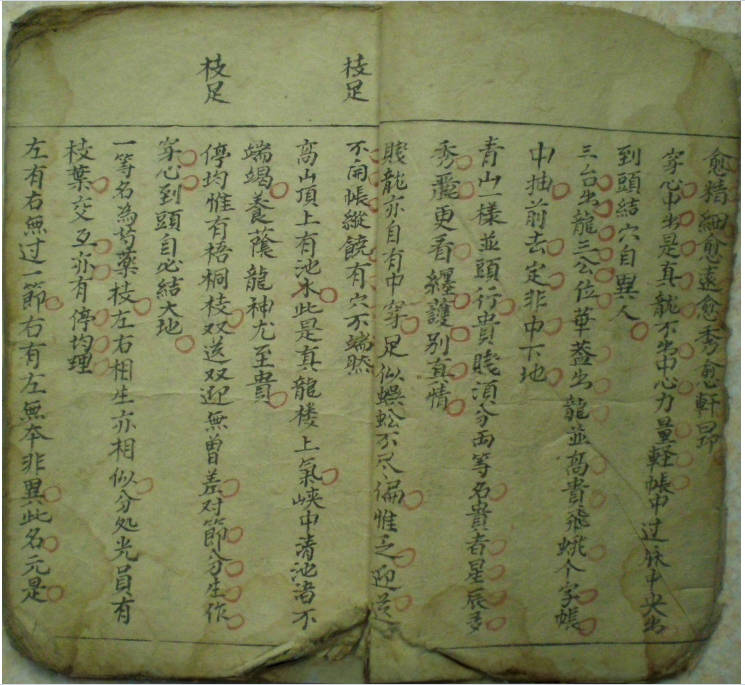 愈精細愈遠愈秀愈軒昂
穿心中出是真龍不出中心力量軽帳中过脉中央出
到頭結穴自異人
三台出龍三公位華蓋出龍並髙貴飛蛾个字帳
中抽前去定非中下地
青山一樣並頭行貴賤湏分両等名貴者星辰多
秀麗更看纒護别真情
賤龍亦自有中穿足似蜈蚣不尽偏惟乏迎送
不開帳縱饒有穴不端然
枝足
髙山頂上有池水此是真龍楼上氣峡中清池渚不
端竭養蔭龍神尤至貴
停均惟有梧桐枝双送双迎無曽差对節分生作
枝足
穿心到頭自必結大地
一等名為芍薬枝左右相生亦相似分処光員有
枝葉交互亦有停均理
左有右無过一節右有左無夲非異此名元是